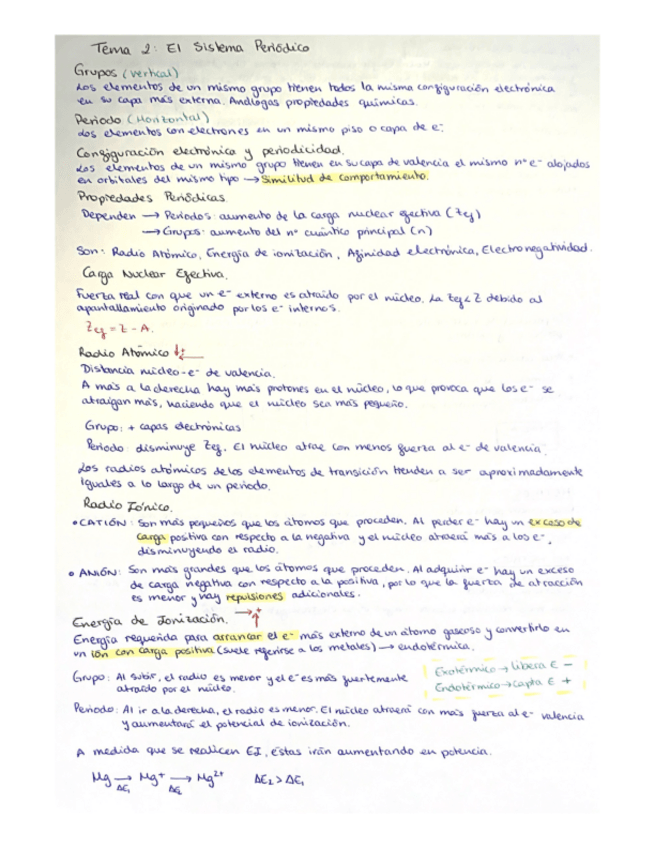 Tema 2: El Sistema Periódico
Grupos (vertical)
Los elementos de un mismo grupo tienen todos la misma configuración electrónica
en su capa más externa. Análogas propiedades químicas.
Periodo (Horizontal)
Los elementos con electrones en un mismo piso o capa de e⁻.
Configuración electrónica y periodicidad.
Los elementos de un mismo grupo tienen en su capa de valencia el mismo nº e⁻ alojados
en orbitales del mismo tipo → Similitud de comportamiento.
Propiedades Periódicas.
Dependen → Periodos: aumento de la carga nuclear efectiva (Zef)
→ Grupos: aumento del nº cuántico principal (n)
Son: Radio Atómico, Energía de ionización, Afinidad electrónica, Electronegatividad.
Carga Nuclear Efectiva.
Fuerza real con que un e⁻ externo es atraído por el núcleo. La Zef < Z debido al
apantallamiento originado por los e⁻ internos.
Zef = Z - A.
Radio Atómico ↓+ ←
Distancia núcleo-e⁻ de valencia.
A más a la derecha hay más protones en el núcleo, lo que provoca que los e⁻ se
atraigan más, haciendo que el núcleo sea más pequeño.
Grupo: + capas electrónicas
Periodo: disminuye Zef. El núcleo atrae con menos fuerza al e⁻ de valencia.
Los radios atómicos de los elementos de transición tienden a ser aproximadamente
iguales a lo largo de un periodo.
Radio Iónico.
• CATIÓN: Son más pequeños que los átomos que proceden. Al perder e⁻ hay un exceso de
carga positiva con respecto a la negativa y el núcleo atraerá más a los e⁻,
disminuyendo el radio.
• ANIÓN: Son más grandes que los átomos que proceden. Al adquirir e⁻ hay un exceso
de carga negativa con respecto a la positiva, por lo que la fuerza de atracción
es menor y hay repulsiones adicionales.
Energía de Ionización. → ↑+
Energía requerida para arrancar el e⁻ más externo de un átomo gaseoso y convertirlo en
un ión con carga positiva (suele referirse a los metales) → endotérmica.
Exotérmico → libera E −
Endotérmico → capta E +
Grupo: Al subir, el radio es menor y el e⁻ es más fuertemente
atraído por el núcleo.
Periodo: Al ir a la derecha, el radio es menor. El núcleo atraerá con más fuerza al e⁻ valencia
y aumentará el potencial de ionización.
A medida que se realicen EI, estas irán aumentando en potencia.
Mg → Mg⁺ → Mg²⁺ ΔE₂ > ΔE₁
ΔE₁ ΔE₂